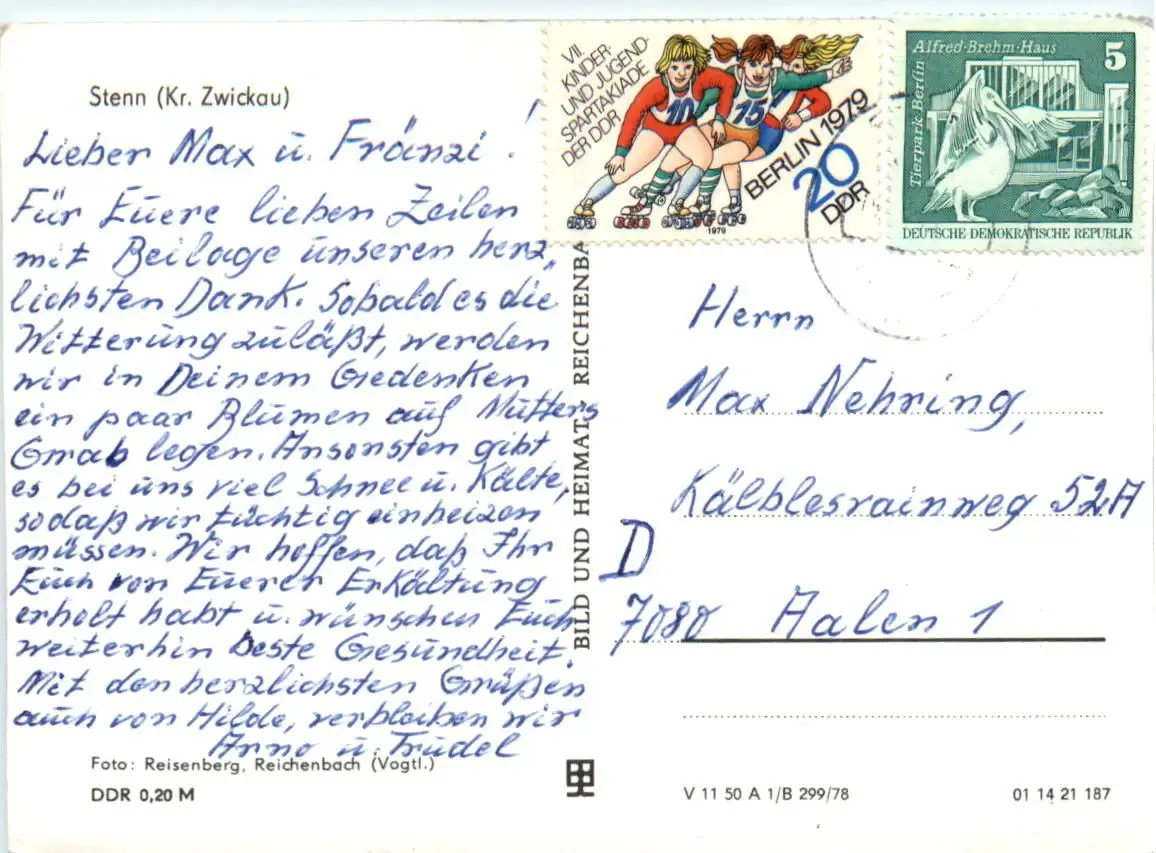 Stenn (Kr. Zwickau)
Lieber Max u. Fränzi!
Für Euere lieben Zeilen
mit Beilage unseren herz„
lichsten Dank. Sobald es die
Witterung zuläßt, werden
wir in Deinem Gedenken
ein paar Blumen auf Mutters
Grab legen. Ansonsten gibt
es bei uns viel Schnee u. Kälte,
sodaß wir tüchtig einheizen
müssen. Wir hoffen, daß Ihr
Euch von Euerer Erkältung
erholt habt u. wünschen Euch
weiterhin beste Gesundheit.
Mit den herzlichsten Grüßen
auch von Hilde, verbleiben wir
Arno u. Trudel
Foto: Reisenberg, Reichenbach (Vogtl.)
DDR 0,20 M
BILD UND HEIMAT REICHENBA
VII.
KINDER-
UND JUGEND-
SPARTAKIADE
DER DDR
10
15
BERLIN 1979
20
DDR
1979
Alfred-Brehm-Haus
5
Tierpark Berlin
DEUTSCHE DEMOKRATISCHE REPUBLIK
Herrn
Max Nehring,
Kälblesrainweg 52A
D
7080 Aalen 1
V 11 50 A 1/B 299/78
01 14 21 187